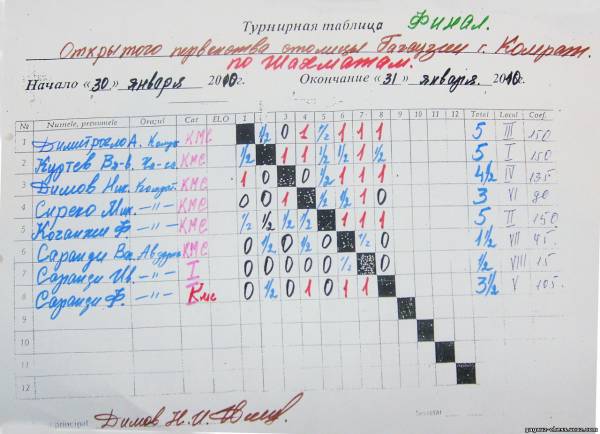 Турнирная таблица Финал.
Открытого первенства столицы Гагаузии г. Комрат.
по Шахматам.
Начало «30» января 2010г. Окончание «31» января 2010г.
№ Numele, prenumele Orașul Cat ELO 1 2 3 4 5 6 7 8 9 10 11 12 Total Locul Coef.
1 Димитрогло А. КМС ½ 0 1 ½ 1 1 1 5 III 150
2 Куртев КМС ½ 1 1 ½ ½ 1 ½ 5 I 150
3 Димов Ник. Комрат КМС 1 0 0 ½ 1 1 1 4½ IV 135
4 Сиреко Мих. –"– КМС 0 0 1 ½ ½ 1 0 3 VI 90
5 Ф. –"– КМС ½ ½ ½ ½ 1 1 1 5 II 150
6 Саранди КМС 0 ½ 0 ½ 0 ½ 0 1½ VII 45
7 Саранди Ив. –"– I 0 0 0 0 0 ½ 0 ½ VIII 15
8 Саранди Ф. –"– Кмс 0 ½ 0 1 0 1 1 3½ V 105
9
10
11
12
principal Димов Н. И.
gagauz-chess.ucoz.com